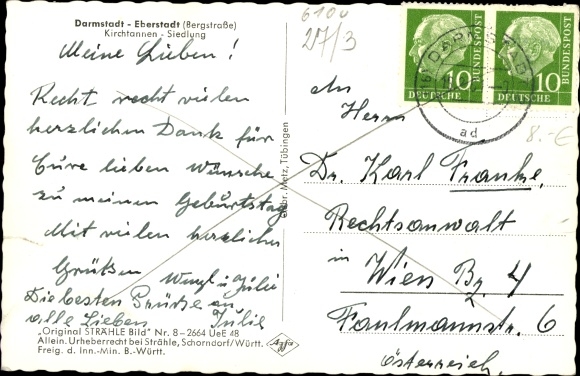 Darmstadt - Eberstadt (Bergstraße)
Kirchtannen - Siedlung
Meine Lieben!
Recht recht vielen
herzlichen Dank für
Eure lieben Wünsche
zu meinem Geburtstag
Mit vielen herzlichen
Grüßen
u Julie
Die besten Grüße an
alle Lieben Julie
"Original STRÄHLE Bild" Nr. 8-2664 UeE 48
Allein. Urheberrecht bei Strähle, Schorndorf/Württ.
Freig. d. Inn.-Min. B.-Württ.
Gebr. Metz, Tübingen
Agfa
6100
27/3
10
DEUTSCHE
BUNDESPOST
10
DEUTSCHE
BUNDESPOST
ad
8.-€
An
Herrn
Dr. Karl Franke,
Rechtsanwalt
in
Wien Bz. 4
Paulmannstr. 6
Österreich,